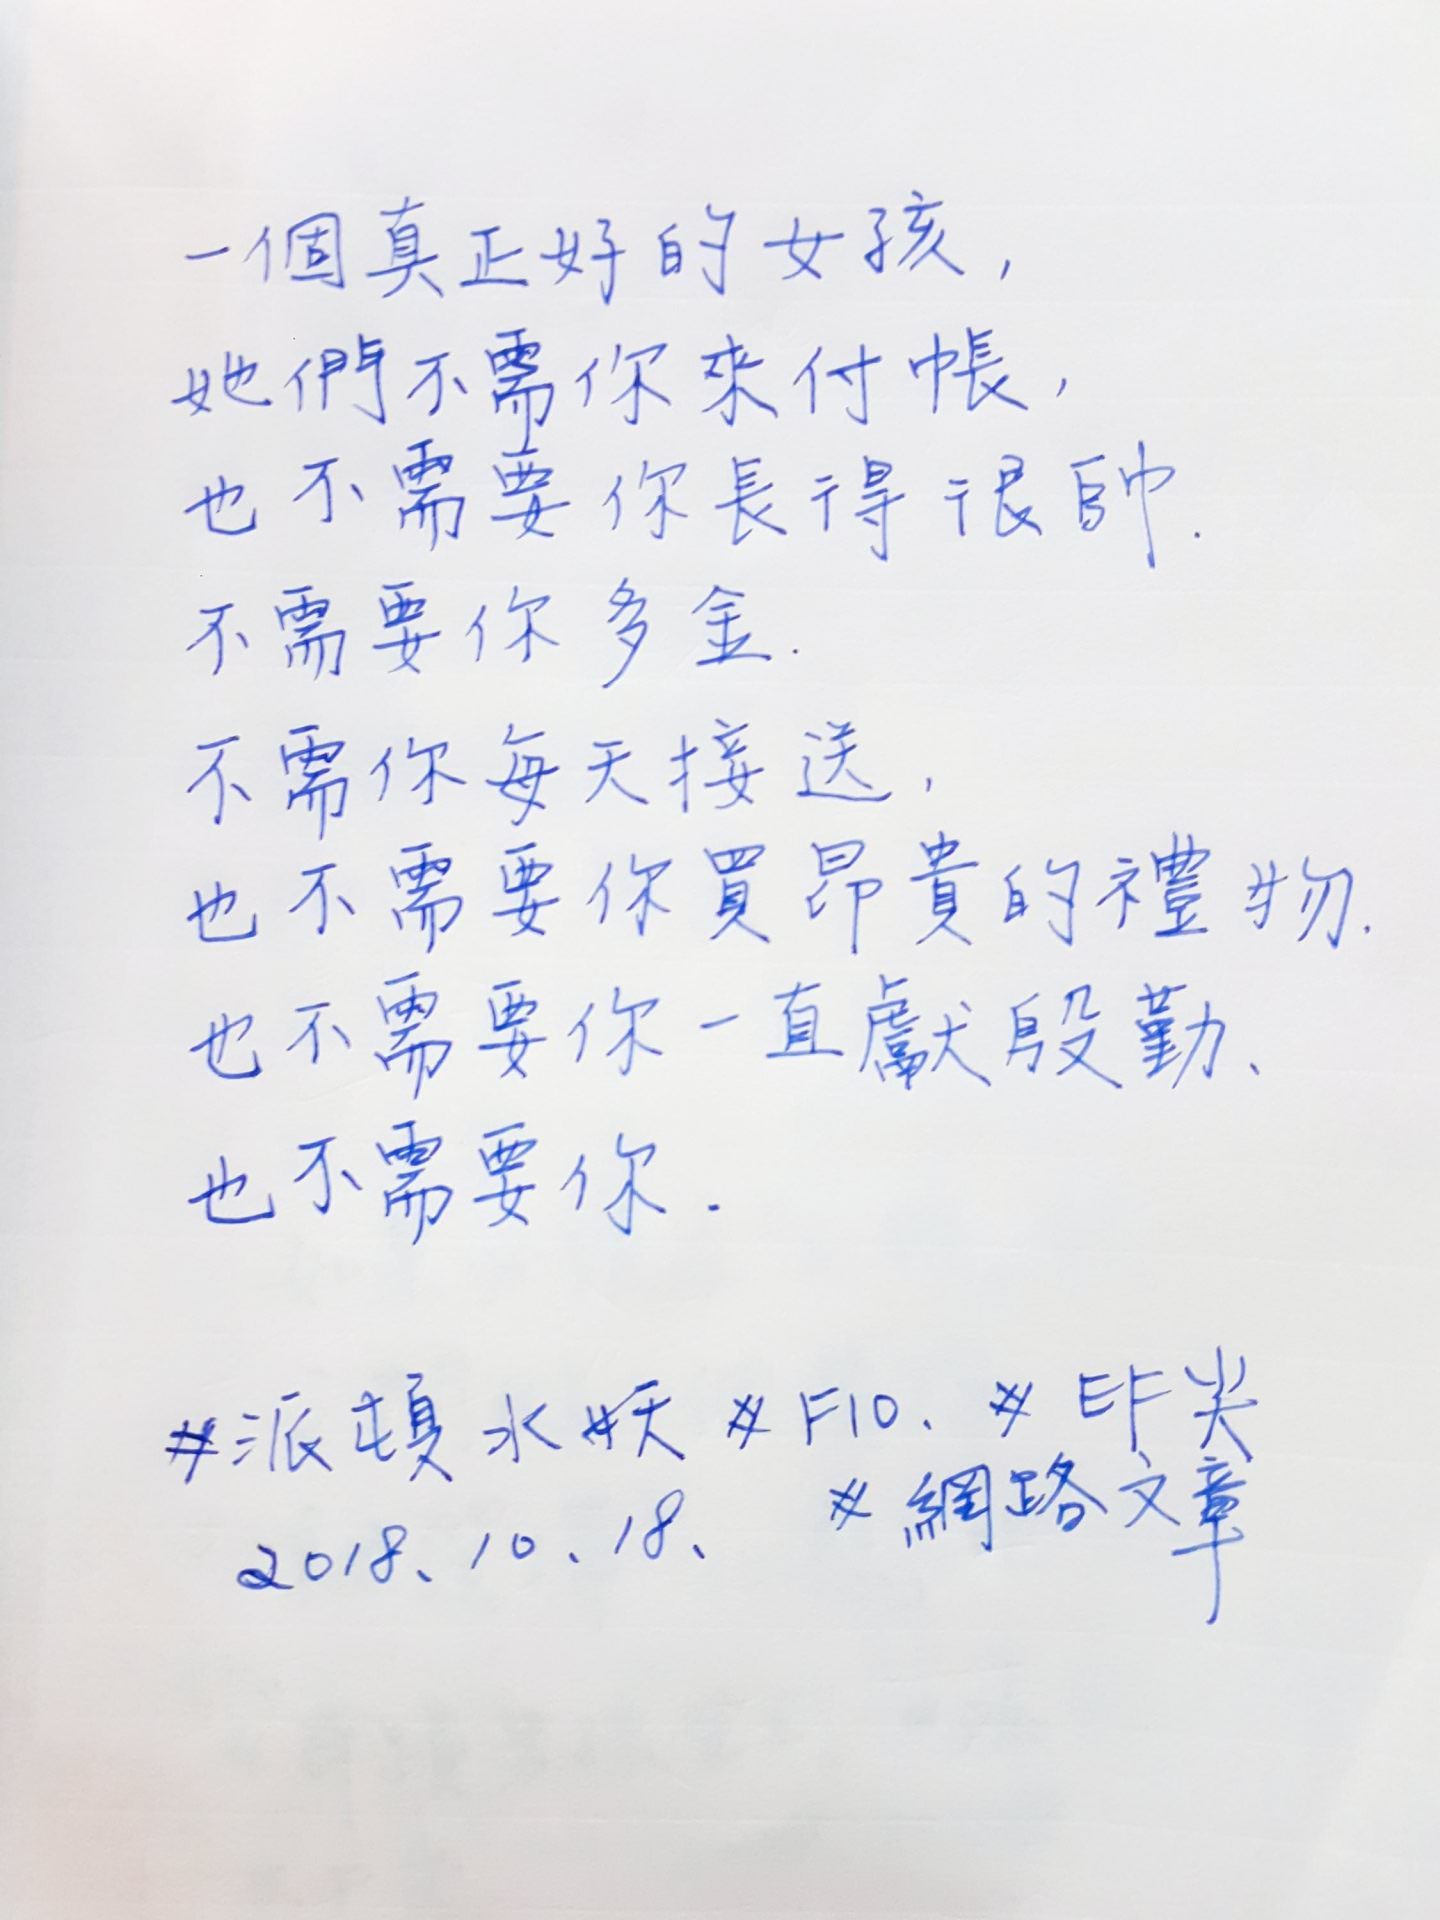 一個真正好的女孩,
她們不需你來付帳,
也不需要你長得很帥.
不需要你多金.
不需你每天接送,
也不需要你買昂貴的禮物.
也不需要你一直獻殷勤、
也不需要你.
#派頓水妖 #F10、 #EF尖
#網路文章
2018、10、18、